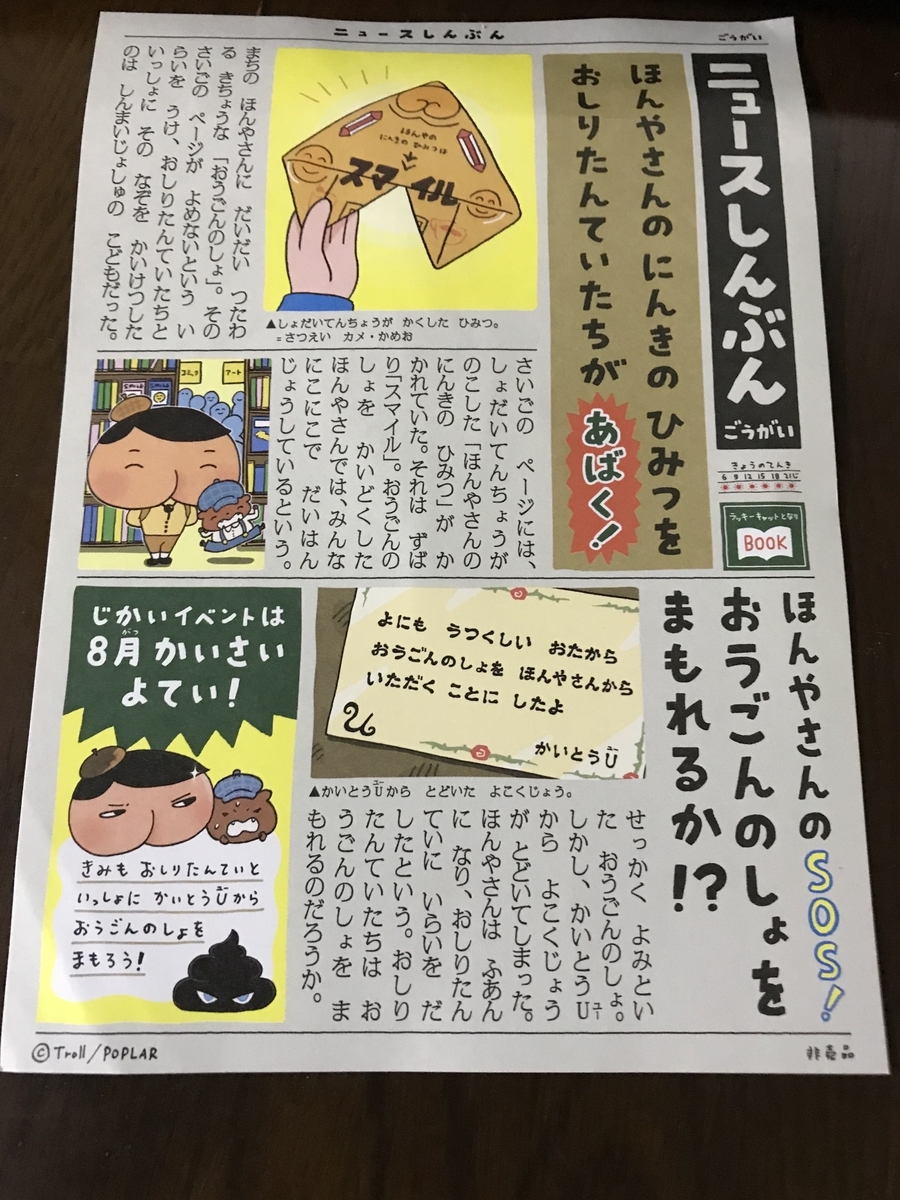 ニュースしんぶん
ごうがい
ニュースしんぶん
ごうがい
きょうのてんき
6 9 12 15 18 21じ
ラッキーキャットとなり
BOOK
ほんやさんのにんきの ひみつを
おしりたんていたちが
あばく!
ほんやの
にんきの ひみつは
スマイル
▲しょだいてんちょうが かくした ひみつ。
=さつえい カメ・かめお
まちの ほんやさんに だいだい つたわ
る きちょうな 「おうごんのしょ」。その
さいごの ページが よめないという い
らいを うけ、おしりたんていたちと
いっしょに その なぞを かいけつした
のは しんまいじょしゅの こどもだった。
さいごの ページには、
しょだいてんちょうが
のこした 「ほんやさんの
にんきの ひみつ」が か
かれていた。それは ずば
り「スマイル」。おうごんの
しょを かいどくした
ほんやさんでは、みんな
にこにこで だいはん
じょうしているという。
コミック
アート
ほんやさんのSOS!
おうごんのしょを
まもれるか!?
よにも うつくしい おたから
おうごんのしょを ほんやさんから
いただく ことに したよ
U
かいとうUユー
▲かいとうUユーから とどいた よこくじょう。
せっかく よみとい
た おうごんのしょ。
しかし、かいとうUユー
から よこくじょう
が とどいてしまった。
ほんやさんは ふあん
に なり、おしりたん
ていに いらいを だ
したという。おしり
たんていたちは お
うごんのしょを ま
もれるのだろうか。
じかいイベントは
8月がつかいさい
よてい!
きみも おしりたんていと
いっしょに かいとうUユーから
おうごんのしょを
まもろう!
©Troll/POPLAR
非売品